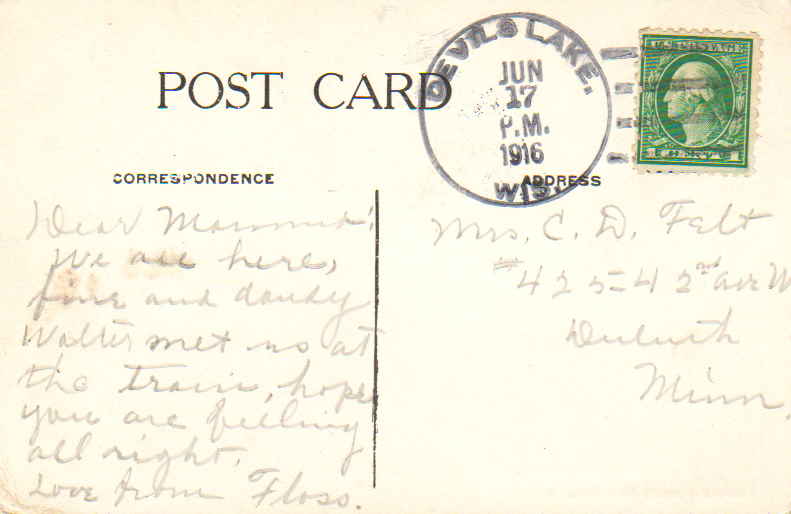 DEVILS LAKE.
JUN
17
P.M.
1916
WIS.
U.S. POSTAGE
1 CENT 1
POST CARD
CORRESPONDENCE
ADDRESS
Dear Mamma!
We are here,
fine and dandy
Walter met us at
the train, hope
you are feeling
all right.
Love from Floss.
Mrs. C. D. Felt
#425-42nd ave W
Duluth
Minn.